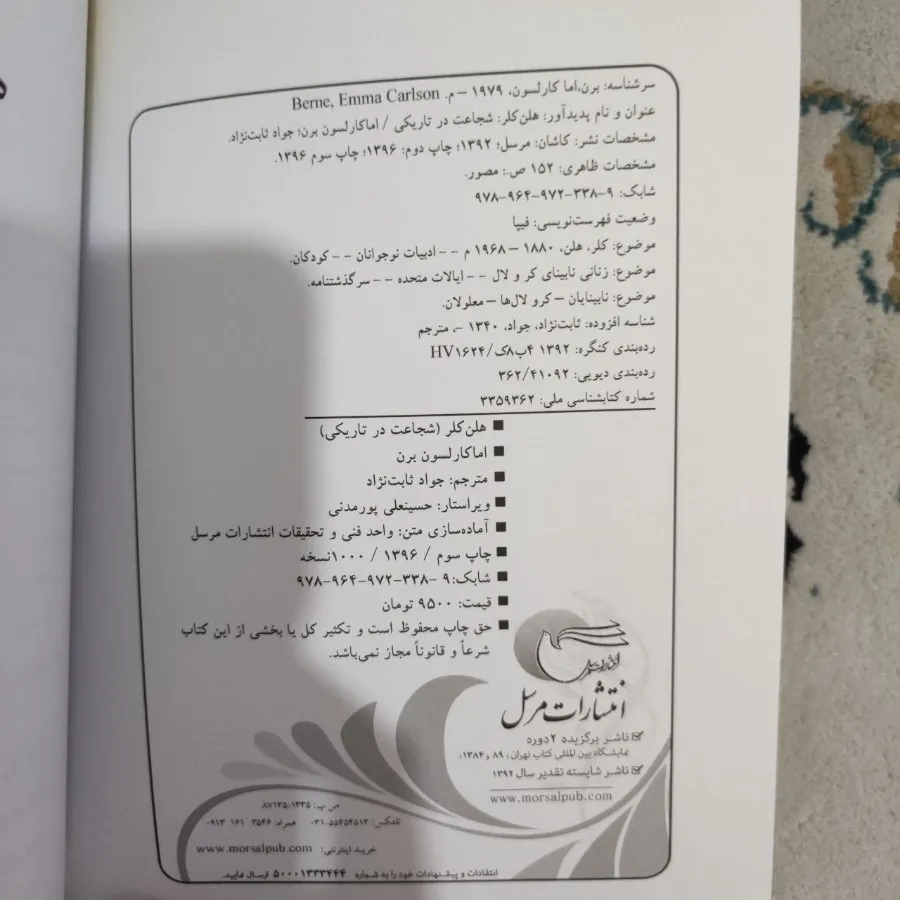 سرشناسه: برن، اما کارلسون، ۱۹۷۹ – م. Berne, Emma Carlson
عنوان و نام پدیدآور: هلن‌کلر: شجاعت در تاریکی / اماکارلسون برن؛ جواد ثابت‌نژاد.
مشخصات نشر: کاشان: مرسل؛ ۱۳۹۲؛ چاپ دوم: ۱۳۹۶؛ چاپ سوم ۱۳۹۶.
مشخصات ظاهری: ۱۵۲ ص.: مصور.
شابک: ۹-۳۳۸-۹۷۲-۹۶۴-۹۷۸
وضعیت فهرست‌نویسی: فیپا
موضوع: کلر، هلن، ۱۸۸۰ – ۱۹۶۸ م -- ادبیات نوجوانان -- کودکان.
موضوع: زنانی نابینای کر و لال -- ایالات متحده -- سرگذشتنامه.
موضوع: نابینایان – کرو لال‌ها – معلولان.
شناسه افزوده: ثابت‌نژاد، جواد، ۱۳۴۰ -، مترجم
رده‌بندی کنگره: ۱۳۹۲ ۴ب۸ک/HV۱۶۲۴
رده‌بندی دیویی: ۳۶۲/۴۱۰۹۲
شماره کتابشناسی ملی: ۳۳۵۹۳۶۲
■ هلن‌کلر (شجاعت در تاریکی)
■ اماکارلسون برن
■ مترجم: جواد ثابت‌نژاد
■ ویراستار: حسینعلی پورمدنی
■ آماده‌سازی متن: واحد فنی و تحقیقات انتشارات مرسل
■ چاپ سوم / ۱۳۹۶ / ۱۰۰۰نسخه
■ شابک: ۹-۳۳۸-۹۷۲-۹۶۴-۹۷۸
■ قیمت: ۹۵۰۰ تومان
■ حق چاپ محفوظ است و تکثیر کل یا بخشی از این کتاب
شرعاً و قانوناً مجاز نمی‌باشد.
انتشارات مرسل
انتشارات مرسل
ناشر برگزیده ۲ دوره
نمایشگاه بین المللی کتاب تهران (۸۹ و ۱۳۸۴)
ناشر شایسته تقدیر سال ۱۳۹۲
www.morsalpub.com
ص پ: ۸۷۱۳۵/۱۳۳۵
تلفکس: ۵۵۴۵۴۵۱۳-۰۳۱ همراه: ۳۵۴۶ ۱۶۱ ۰۹۱۳
خرید اینترنتی: www.morsalpub.com
انتقادات و پیشنهادات خود را به شماره ۵۰۰۰۱۳۳۳۴۴۴ ارسال نمایید.